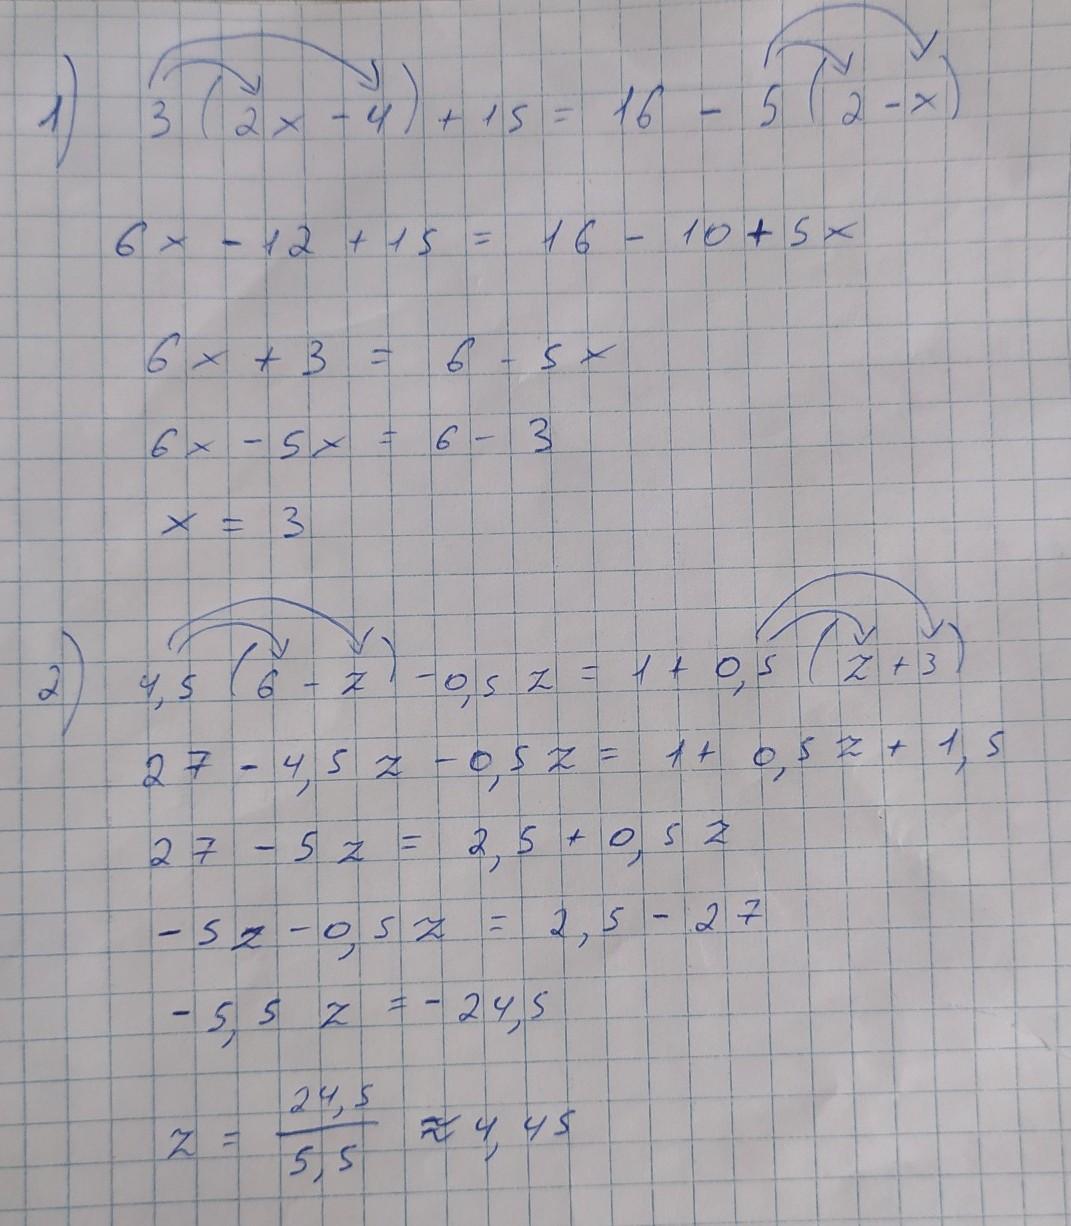 1) 3 (2x - 4) + 15 = 16 - 5 (2 - x)
6x - 12 + 15 = 16 - 10 + 5x
6x + 3 = 6 - 5x
6x - 5x = 6 - 3
x = 3
2) 4,5 (6 - z) - 0,5 z = 1 + 0,5 (z + 3)
27 - 4,5 z - 0,5 z = 1 + 0,5 z + 1,5
27 - 5 z = 2,5 + 0,5 z
- 5z - 0,5 z = 2,5 - 27
- 5,5 z = - 24,5
z = 24,5 / 5,5 ≈ 4,45